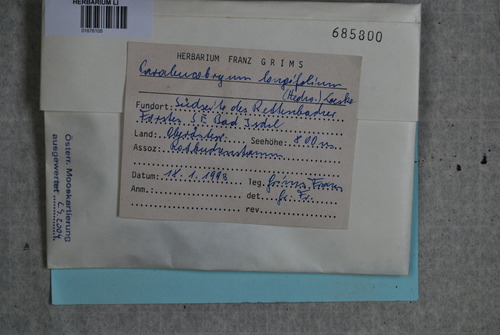 HERBARIUM LI
01678105
685800
HERBARIUM FRANZ GRIMS
Paraleucobryum longifolium
(Hedw.) Loeske
Fundort: Südseite des Rettenbaches
Forsten SE Bad Ischl
Land: Oberösterr. Seehöhe: 800 m
Assoz: Rotbuchenstamm
Datum: 18.1.1993 Teg. Grims Franz
Anm. det. Gr. Fr.
rev.
Österr. Mooskartierung
ausgewertet 2004